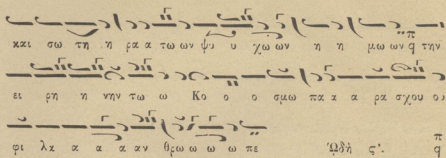 και σω τη η ρα α τω ων ψυ υ χω ων η η μω ων π̈ q την
ει ρη η νην τω ω Κο ο ο σμω πα α α ρα σχου ου
φι λα α α α αν θρω ω ω ω πε Ὠδὴ ς΄. π q